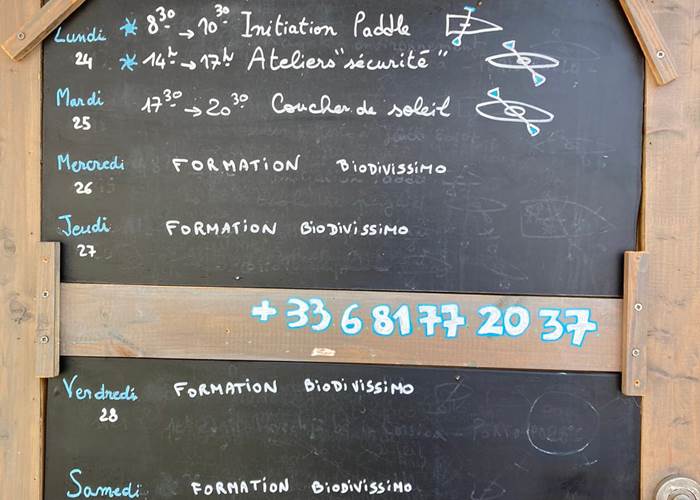 Lundi * 8 30 → 10 30 Initiation Paddle
24 * 14h → 17h Ateliers "sécurité"
Mardi 17 30 → 20 30 Coucher de soleil
25
Mercredi FORMATION BIODIVISSIMO
26
Jeudi FORMATION BIODIVISSIMO
27
+ 33 6 81 77 20 37
Vendredi FORMATION BIODIVISSIMO
28
Samedi FORMATION BIODIVISSIMO